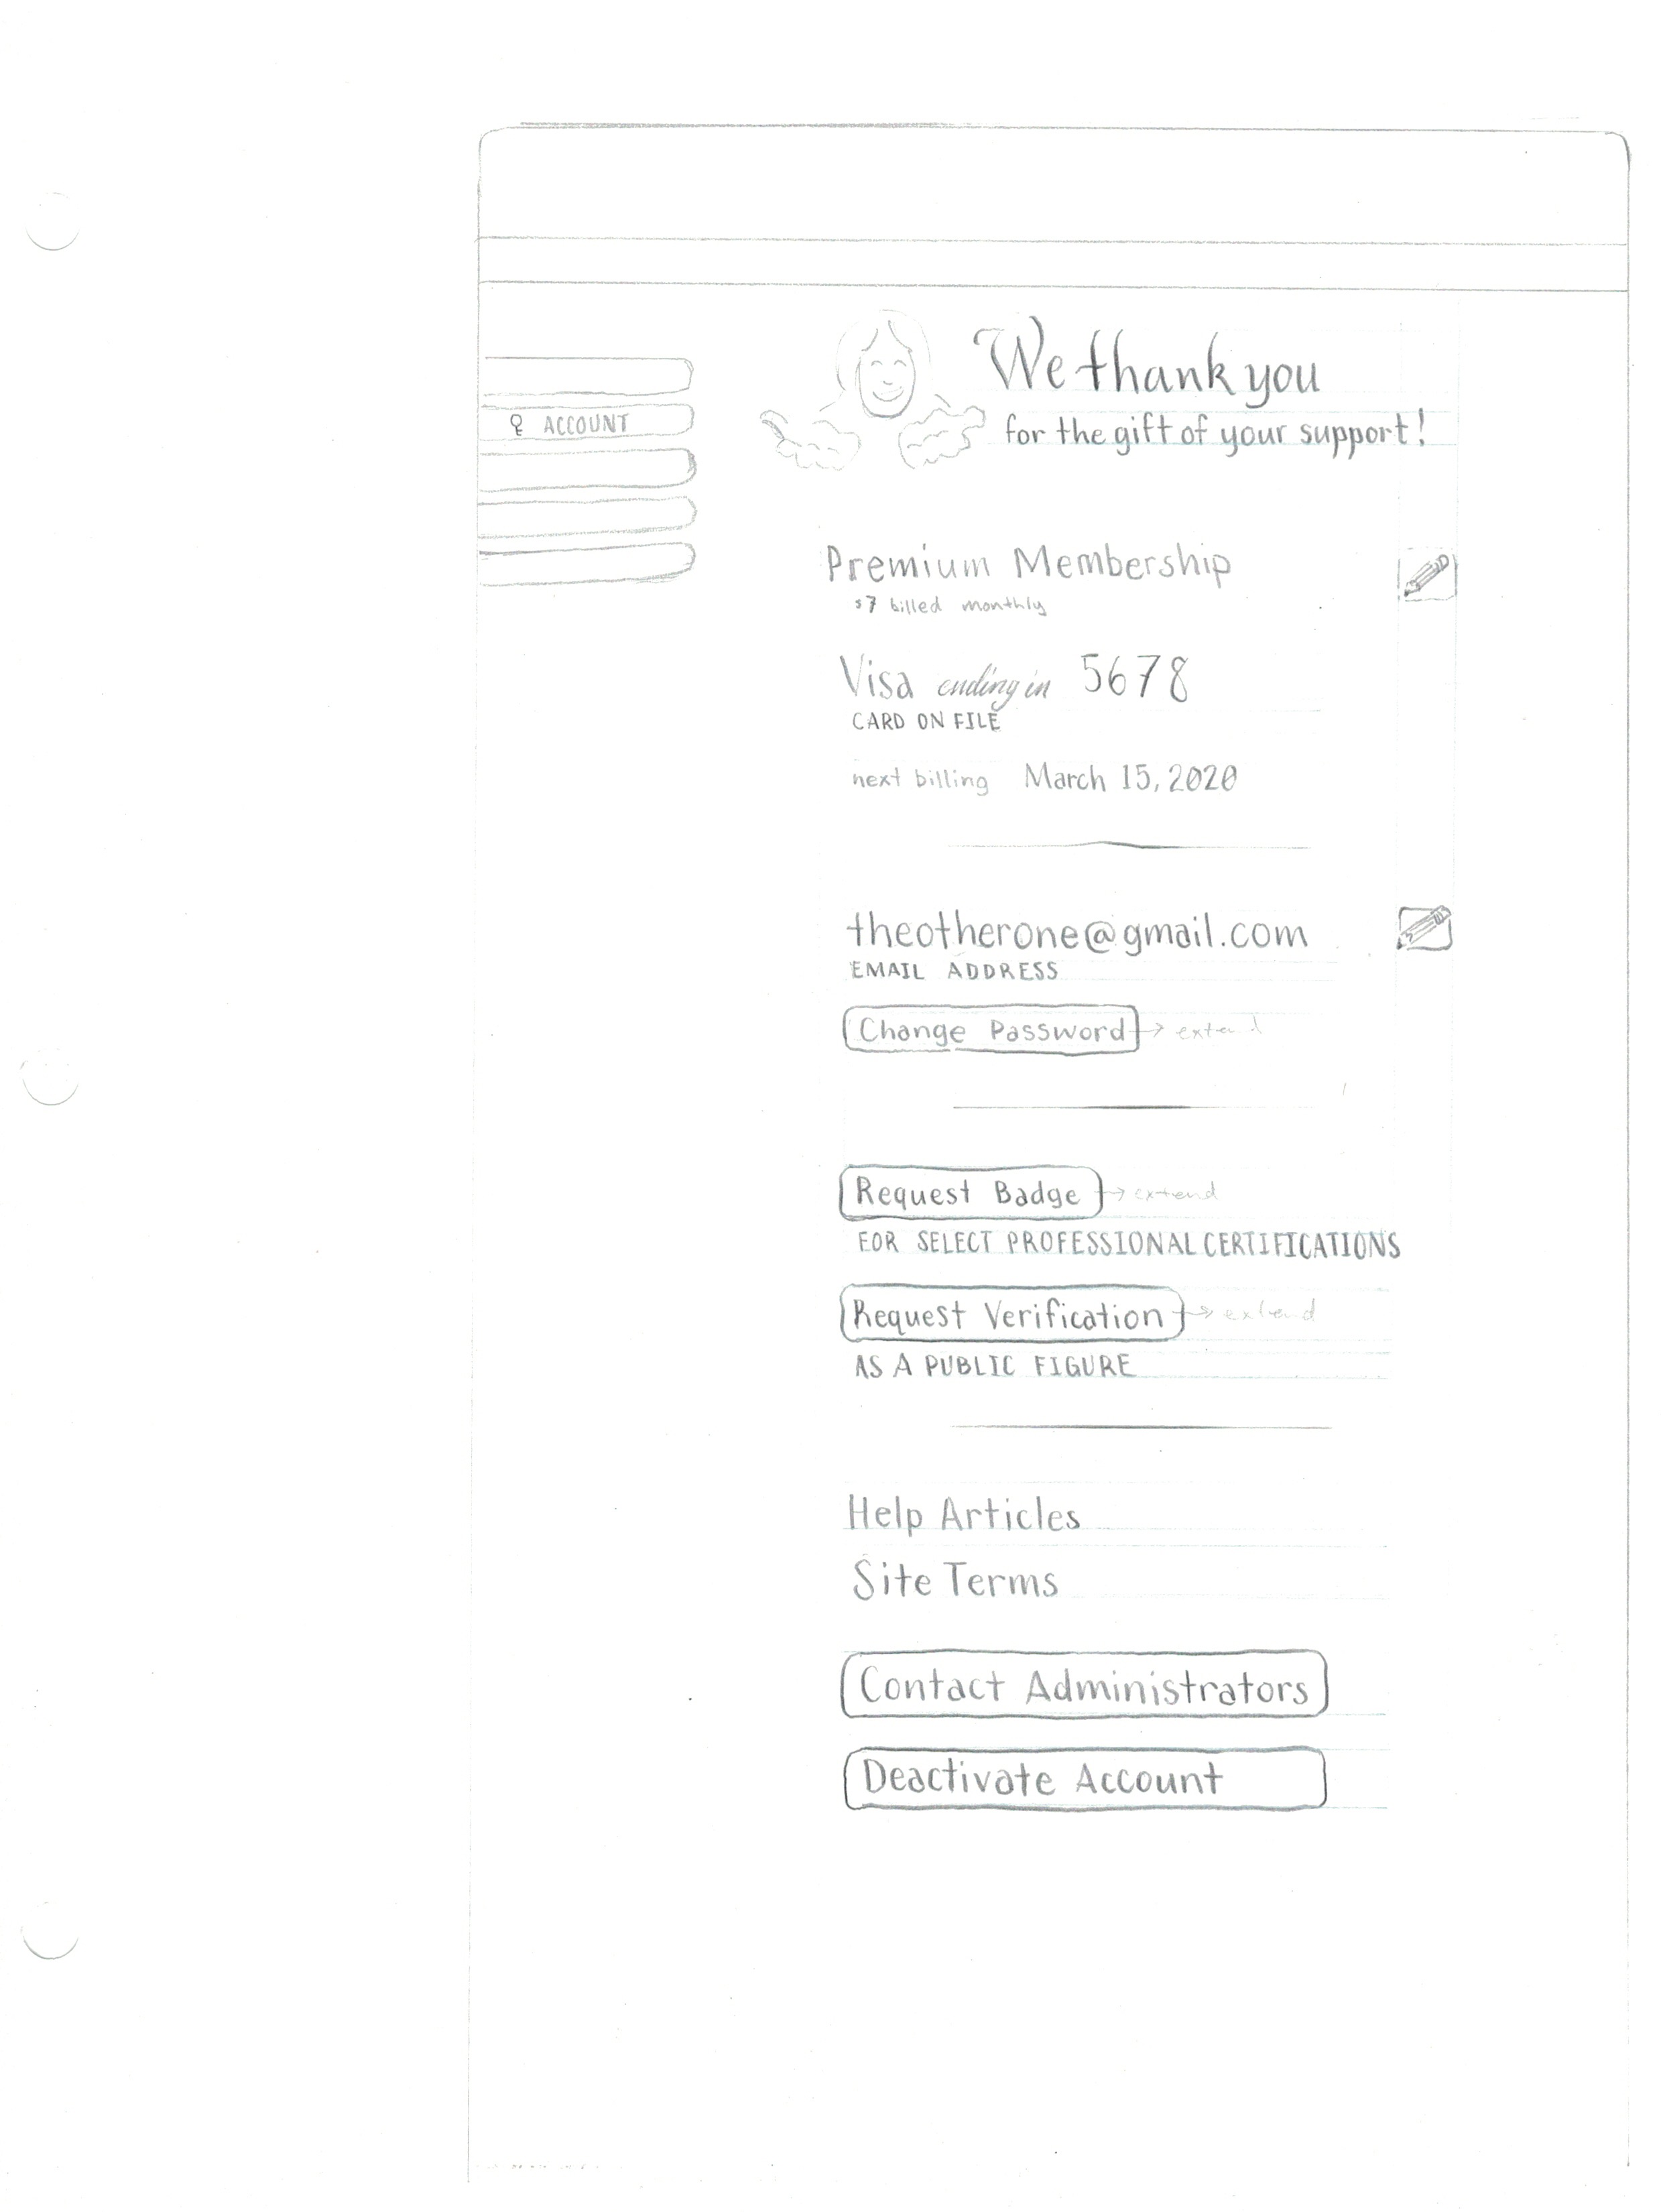 We thank you
for the gift of your support!
ACCOUNT
Premium Membership
$7 billed monthly
Visa ending in 5678
CARD ON FILE
next billing March 15, 2020
theotherone@gmail.com
EMAIL ADDRESS
Change Password → extend
Request Badge → extend
FOR SELECT PROFESSIONAL CERTIFICATIONS
Request Verification → extend
AS A PUBLIC FIGURE
Help Articles
Site Terms
Contact Administrators
Deactivate Account